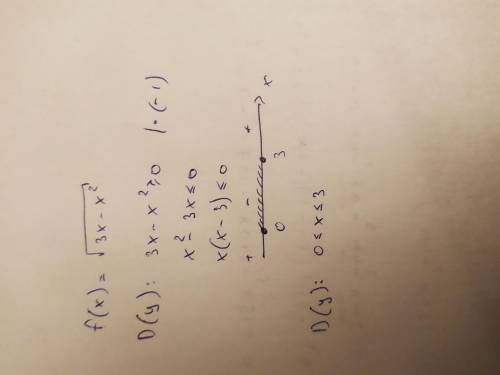 f(x) = √(3x - x²)
D(y): 3x - x² ≥ 0 | · (-1)
x² - 3x ≤ 0
x(x - 3) ≤ 0
+ - +
0 3 x
D(y): 0 ≤ x ≤ 3